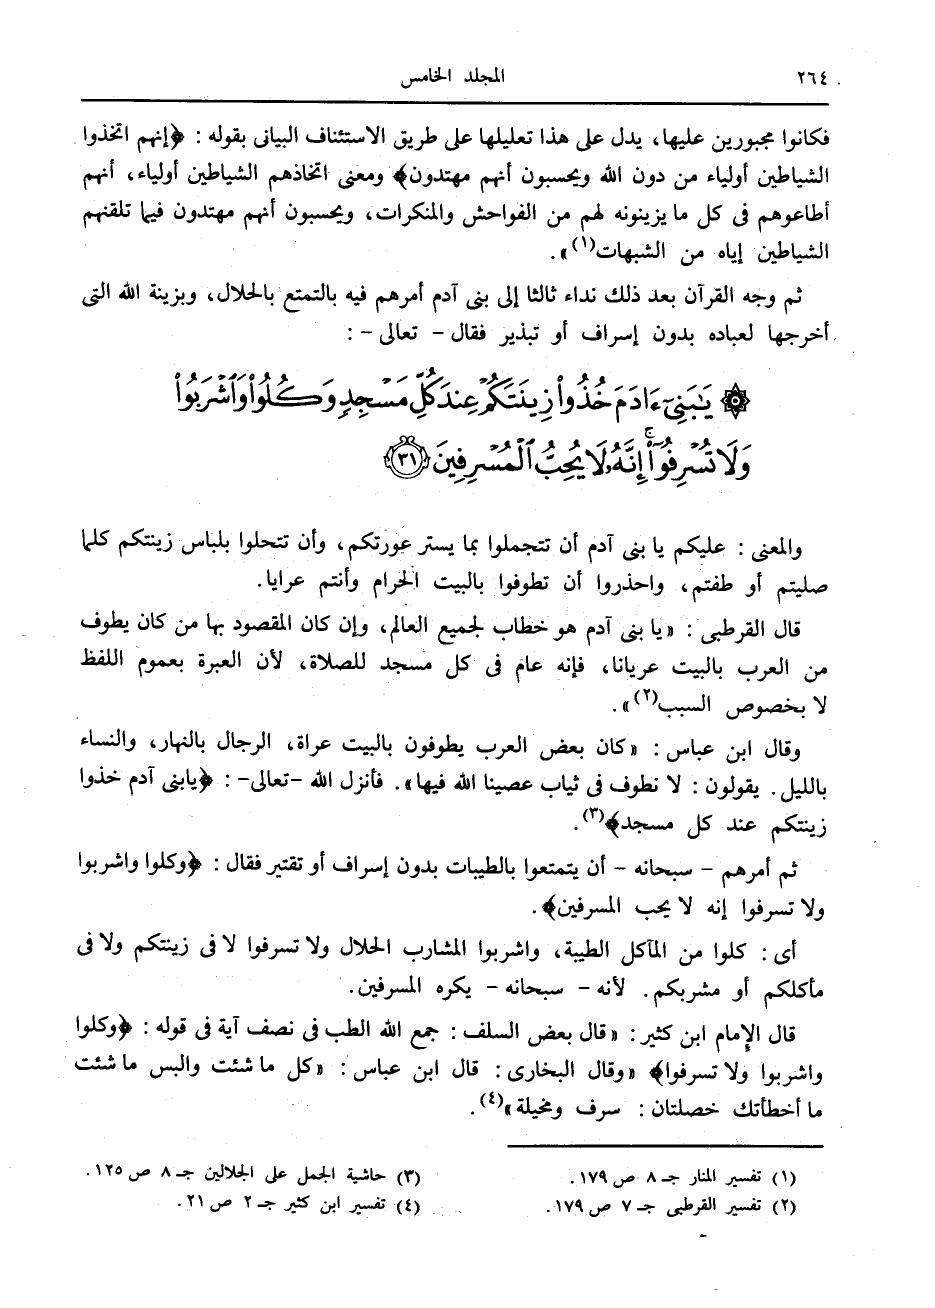 ٢٦٤ المجلد الخامس
فكانوا مجبورين عليها، يدل على هذا تعليلها على طريق الاستئناف البيانى بقوله : ﴿إنهم اتخذوا
الشياطين أولياء من دون الله ويحسبون أنهم مهتدون﴾ ومعنى اتخاذهم الشياطين أولياء، أنهم
أطاعوهم فى كل ما يزينونه لهم من الفواحش والمنكرات، ويحسبون أنهم مهتدون فيما تلقنهم
الشياطين إياه من الشبهات(١)».
ثم وجه القرآن بعد ذلك نداء ثالثا إلى بنى آدم أمرهم فيه بالتمتع بالحلال، وبزينة الله التى
أخرجها لعباده بدون إسراف أو تبذير فقال - تعالى - :
۞ يَٰبَنِىٓ ءَادَمَ خُذُوا۟ زِينَتَكُمْ عِندَ كُلِّ مَسْجِدٍ وَكُلُوا۟ وَٱشْرَبُوا۟
وَلَا تُسْرِفُوٓا۟ ۚ إِنَّهُۥ لَا يُحِبُّ ٱلْمُسْرِفِينَ ٣١
والمعنى : عليكم يا بنى آدم أن تتجملوا بما يستر عورتكم، وأن تتحلوا بلباس زينتكم كلما
صليتم أو طفتم، واحذروا أن تطوفوا بالبيت الحرام وأنتم عرايا.
قال القرطبى : «يا بنى آدم هو خطاب لجميع العالم، وإن كان المقصود بها من كان يطوف
من العرب بالبيت عريانا، فإنه عام فى كل مسجد للصلاة، لأن العبرة بعموم اللفظ
لا بخصوص السبب(٢)».
وقال ابن عباس : «كان بعض العرب يطوفون بالبيت عراة، الرجال بالنهار، والنساء
بالليل. يقولون : لا نطوف فى ثياب عصينا الله فيها». فأنزل الله -تعالى- : ﴿يابنى آدم خذوا
زينتكم عند كل مسجد﴾(٣).
ثم أمرهم - سبحانه - أن يتمتعوا بالطيبات بدون إسراف أو تقتير فقال : ﴿وكلوا واشربوا
ولا تسرفوا إنه لا يحب المسرفين﴾.
أى : كلوا من المآكل الطيبة، واشربوا المشارب الحلال ولا تسرفوا لا فى زينتكم ولا فى
مأكلكم أو مشربكم. لأنه - سبحانه - يكره المسرفين.
قال الإمام ابن كثير : «قال بعض السلف : جمع الله الطب فى نصف آية فى قوله : ﴿وكلوا
واشربوا ولا تسرفوا﴾ «وقال البخارى : قال ابن عباس : «كل ما شئت والبس ما شئت
ما أخطأتك خصلتان : سرف ومخيلة»(٤).
(١) تفسير المنار جـ ٨ ص ١٧٩. (٣) حاشية الجمل على الجلالين جـ ٨ ص ١٢٥.
(٢) تفسير القرطبى جـ ٧ ص ١٧٩. (٤) تفسير ابن كثير جـ ٢ ص ٢١.